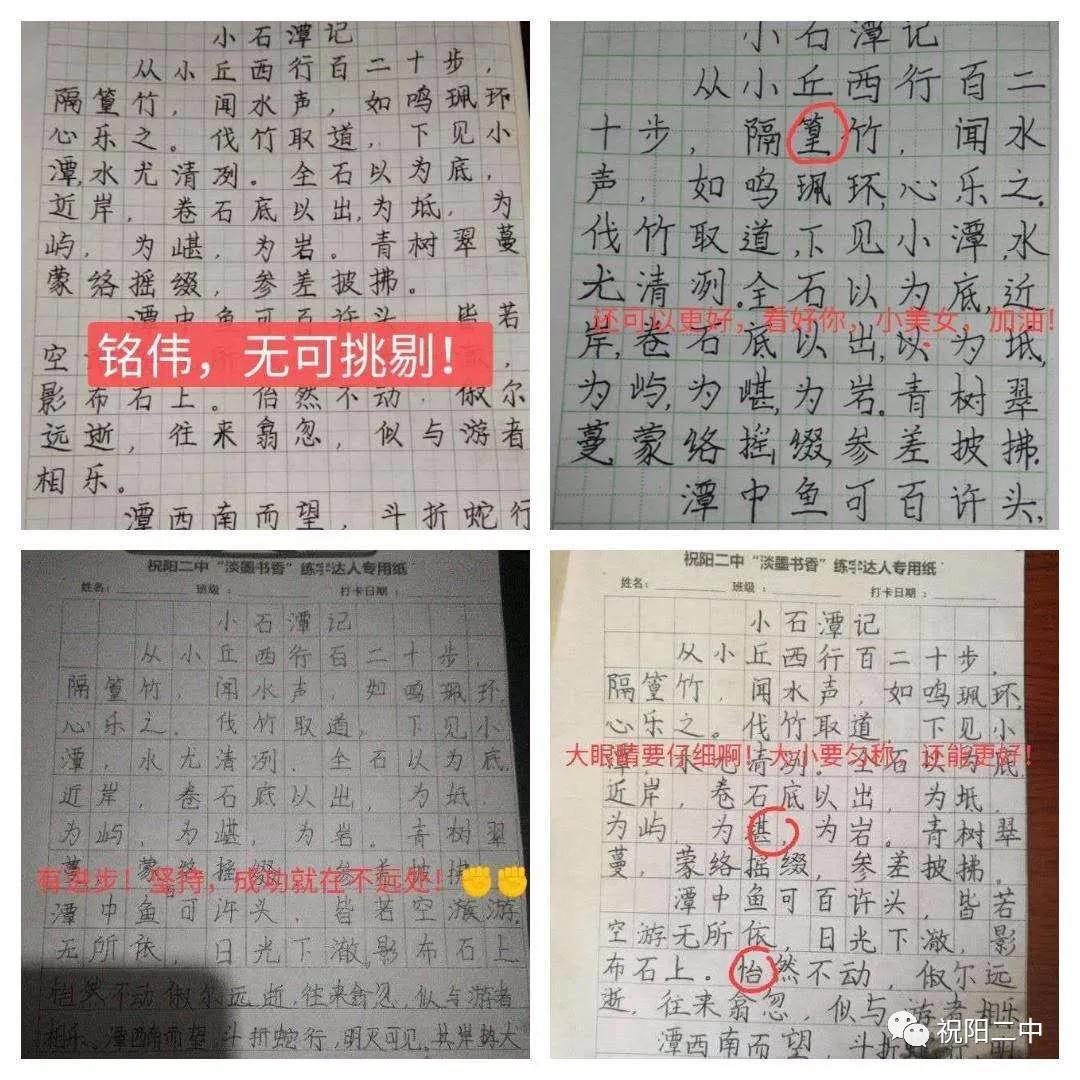 小石潭记
从小丘西行百二十步，
隔篁竹，闻水声，如鸣珮环
心乐之。伐竹取道，下见小
潭，水尤清冽。全石以为底，
近岸，卷石底以出，为坻，为
屿，为嵁，为岩。青树翠蔓
蒙络摇缀，参差披拂。
潭中鱼可百许头，皆若
铭伟，无可挑剔！
影布石上。佁然不动，俶尔
远逝，往来翕忽，似与游者
相乐。
潭西南而望，斗折蛇行
小石潭记
从小丘西行百二
十步，隔篁竹，闻水
声，如鸣珮环，心乐之。
伐竹取道，下见小潭，水
尤清冽。全石以为底，近
还可以更好，看好你，小美女，加油！
岸，卷石底以出，以为坻，
为屿，为嵁，为岩。青树翠
蔓蒙络摇缀，参差披拂。
潭中鱼可百许头，
祝阳二中“淡墨书香”练字达人专用纸
姓名： 班级： 打卡日期：
小石潭记
从小丘西行百二十步，
隔篁竹，闻水声，如鸣珮环，
心乐之。伐竹取道，下见小
潭，水尤清冽，全石以为底，
近岸，卷石底以出，为坻，
为屿，为嵁，为岩。青树翠
蔓，蒙络摇缀，参差披拂
有进步！坚持，成功就在不远处！✊✊
潭中鱼可许头，皆若空游游，
无所依，日光下澈，影布石上
然不动俶尔远逝，往来翕忽，似与游者
相乐。潭西南而望，斗折蛇行，明灭可见。其岸势犬
祝阳二中“淡墨书香”练字达人专用纸
姓名： 班级： 打卡日期：
小石潭记
从小丘西行百二十步，
隔篁竹，闻水声，如鸣珮环，
心乐之。伐竹取道，下见小
潭，水尤清冽。全石以为底，
大眼睛要仔细啊！大小要匀称，还能更好！
近岸，卷石底以出，为坻，
为屿，为嵁，为岩。青树翠
蔓，蒙络摇缀，参差披拂。
潭中鱼可百许头，皆若
空游无所依，日光下澈，影
布石上。怡然不动，俶尔远
逝，往来翕忽，似与游者相乐
潭西南而望，斗折
祝阳二中